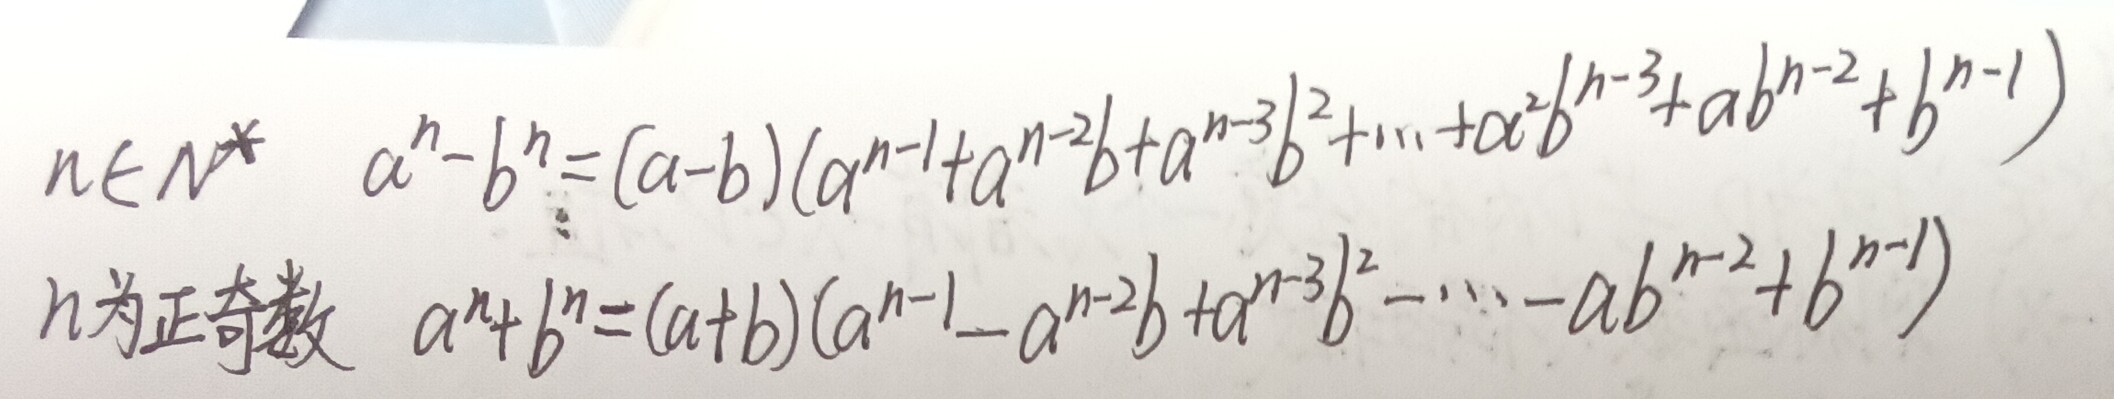 n∈N* aⁿ-bⁿ=(a-b)(aⁿ⁻¹+aⁿ⁻²b+aⁿ⁻³b²+…+a²bⁿ⁻³+abⁿ⁻²+bⁿ⁻¹)
n为正奇数 aⁿ+bⁿ=(a+b)(aⁿ⁻¹-aⁿ⁻²b+aⁿ⁻³b²-…-abⁿ⁻²+bⁿ⁻¹)